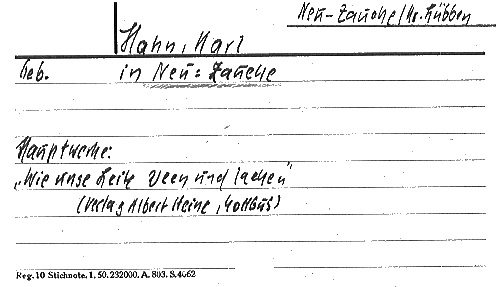 Neu-Zauche/Kr. Lübben
Hahn, Karl
Geb. in Neu-Zauche
Hauptwerke:
„Wie unse Leite reen und lachen"
(Verlag Albert Heine, Cottbus)
Reg. 10 Stichnote. 1, 50. 232000. A. 803. S. 4662